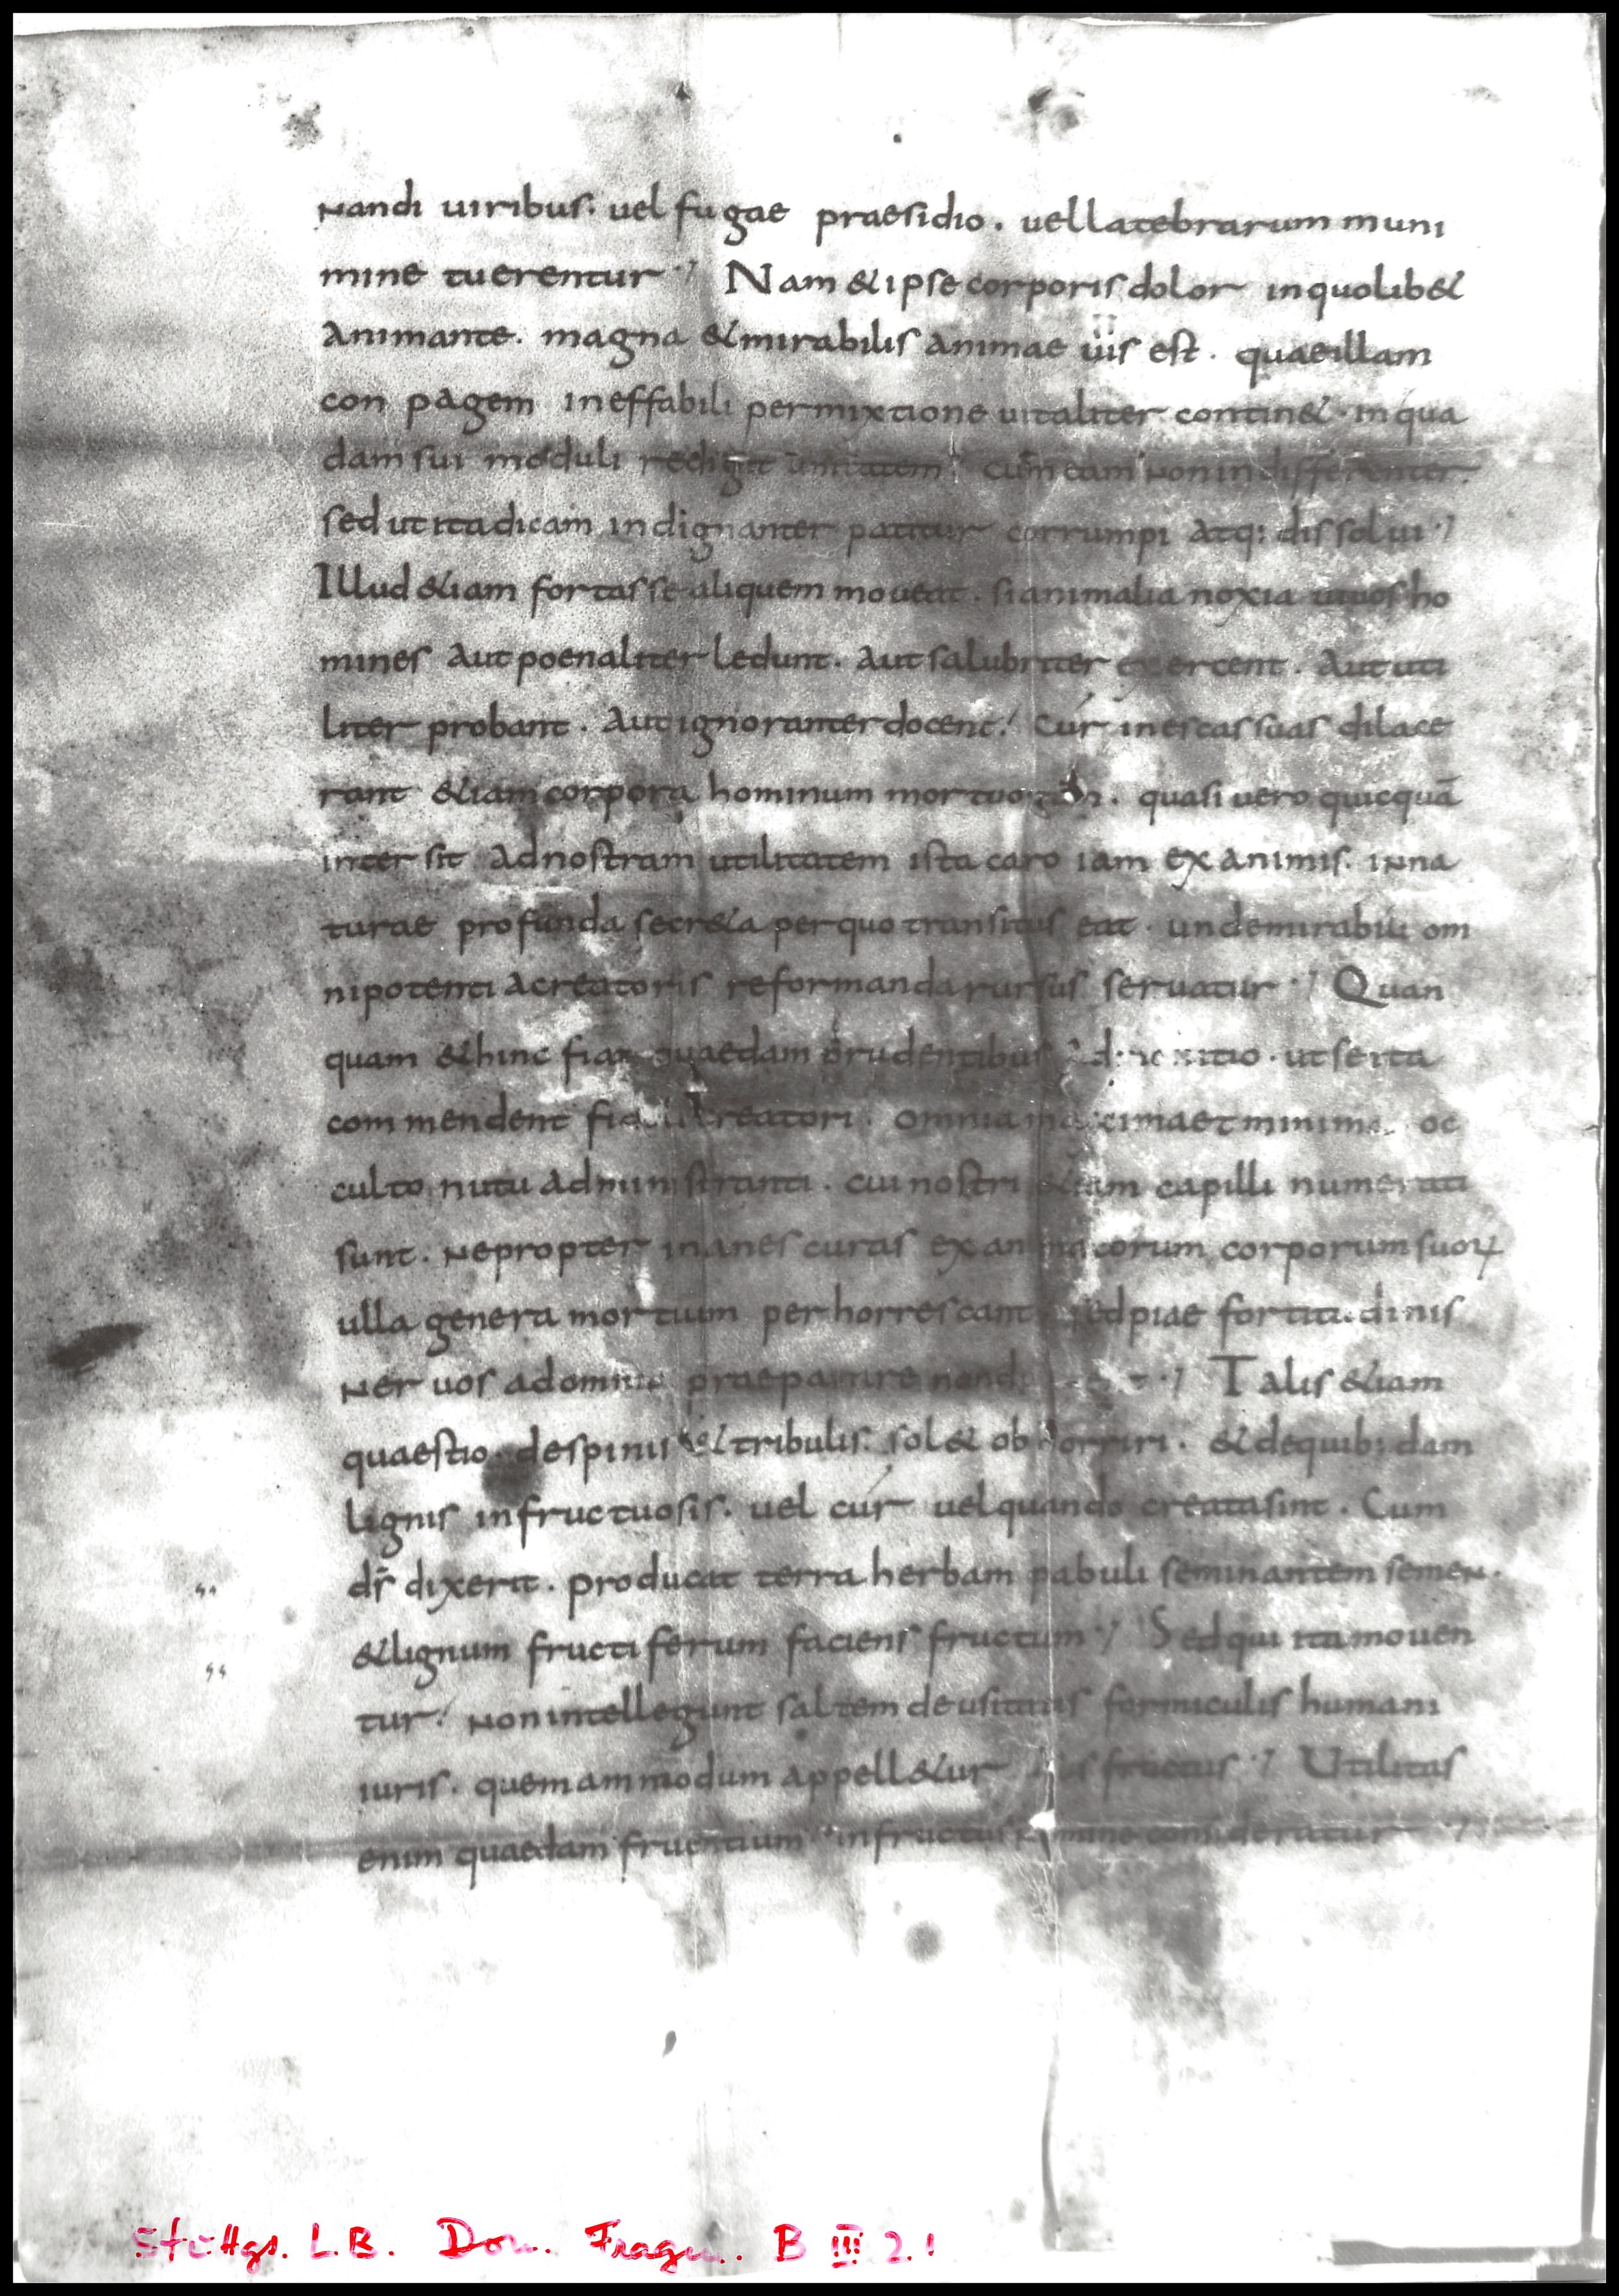 nandi uiribus. uel fugae praesidio. uel latebrarum muni
mine tuerentur. Nam & ipse corporis dolor in quolib&
animante. magna & mirabilis animae uis est. quae illam
con pagem ineffabili permixtione uitaliter contin&. in qua
dam sui moduli redigit unitatem. cum eam non indifferenter.
sed ut ita dicam indignanter patitur corrumpi atq: dissolui.
Illud &iam fortasse aliquem moueat. si animalia noxia uiuos ho
mines aut poenaliter ledunt. aut salubriter exercent. aut uti
liter probant. aut ignoranter docent. Cúr in escas suas dilace
rant &iam corpora hominum. quasi uero quicquā
inter sit ad nostram utilitatem ista caro iam exanimis. in na
turae profunda secr&a per quo transitus eat. unde mirabili om
nipotentia creatoris reformanda rursus seruatur. Quan
quam & hinc quaedam prudentibus. ut se ita
commendent creatori. omnia et minima oc
culto nutu administranti. cui nostri &iam capilli numerati
sunt. Ne propter inanes curas corporum suoꝝ
ulla genera mortium perhorrescant sed piae fortitudinis
neruos praeparare. Talis &iam
quaestio de spinis & tribulis. sol& oboriri. & de quib; dam
lignis infructuosis. uel cúr uel quando creata sint. Cum
dr̄ dixerit. producat terra herbam pabuli seminantem semen.
& lignum fructiferum faciens fructum. Sed qui ita mouen
tur. non intellegunt saltem de usitatis formiculis humani
iuris. quem ammodum appell&ur fructus. Utilitas
enim quaedam fruentium in fructus consideratur
Stuttgt. L.B. Don. Fragm. B III 2.1